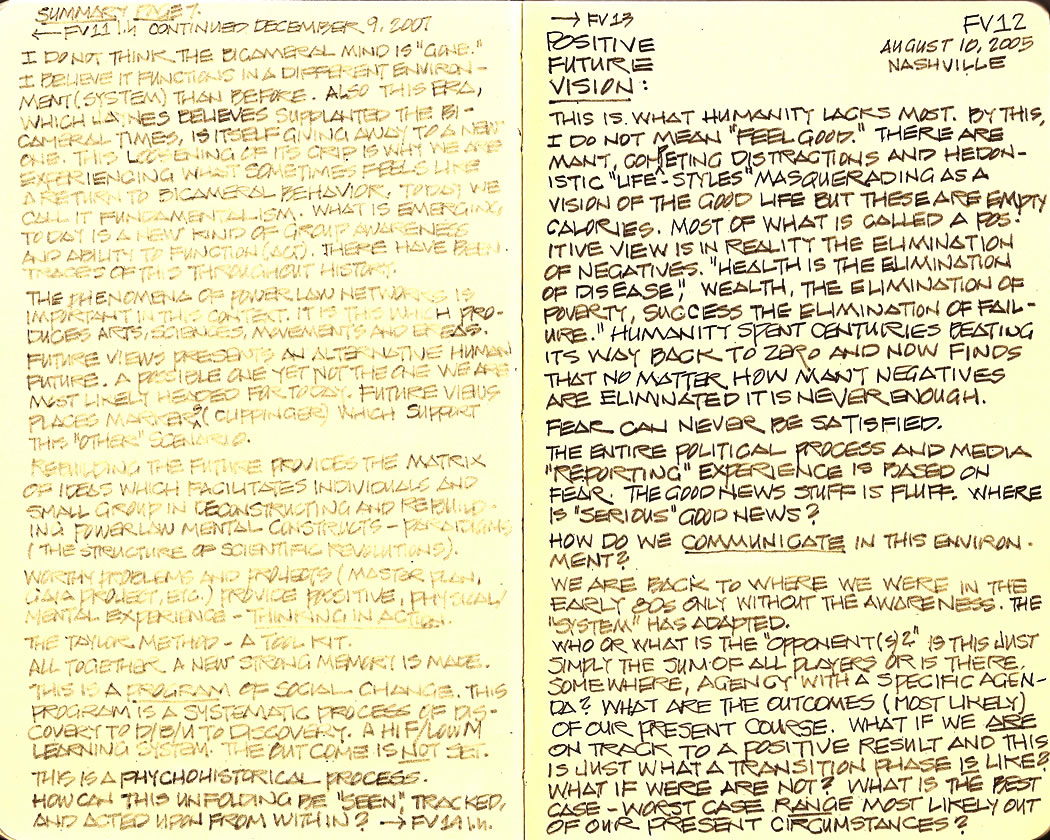 SUMMARY PAGE 7.
← FV11 i.n. CONTINUED DECEMBER 9, 2007
I DO NOT THINK THE BICAMERAL MIND IS "GONE."
I BELIEVE IT FUNCTIONS IN A DIFFERENT ENVIRON-
MENT (SYSTEM) THAN BEFORE. ALSO THIS ERA,
WHICH JAYNES BELIEVES SUPPLANTED THE BI-
CAMERAL TIMES, IS ITSELF GIVING AWAY TO A NEW
ONE. THIS LOOSENING OF ITS GRIP IS WHY WE ARE
EXPERIENCING WHAT SOMETIMES FEELS LIKE
A RETURN TO BICAMERAL BEHAVIOR. TODAY WE
CALL IT FUNDAMENTALISM. WHAT IS EMERGING
TODAY IS A NEW KIND OF GROUP AWARENESS
AND ABILITY TO FUNCTION (ACT). THERE HAVE BEEN
TRACES OF THIS THROUGHOUT HISTORY.
THE PHENOMENA OF POWER LAW NETWORKS IS
IMPORTANT IN THIS CONTEXT. IT IS THIS WHICH PRO-
DUCES ARTS, SCIENCES, MOVEMENTS AND ERAS.
FUTURE VIEWS PRESENTS AN ALTERNATIVE HUMAN
FUTURE. A POSSIBLE ONE YET NOT THE ONE WE ARE
MOST LIKELY HEADED FOR TODAY. FUTURE VIEWS
PLACES MARKERS (CLIPPINGER) WHICH SUPPORT
THIS "OTHER" SCENARIO.
REBUILDING THE FUTURE PROVIDES THE MATRIX
OF IDEAS WHICH FACILITATES INDIVIDUALS AND
SMALL GROUP IN DECONSTRUCTING AND REBUILD-
ING POWERLAW MENTAL CONSTRUCTS - PARADIGMS
(THE STRUCTURE OF SCIENTIFIC REVOLUTIONS).
WORTHY PROBLEMS AND PROJECTS (MASTER PLAN,
GAIA PROJECT, ETC.) PROVIDE POSITIVE, PHYSICAL/
MENTAL EXPERIENCE - THINKING IN ACTION.
THE TAYLOR METHOD - A TOOL KIT.
ALL TOGETHER A NEW STRONG MEMORY IS MADE.
THIS IS A PROGRAM OF SOCIAL CHANGE. THIS
PROGRAM IS A SYSTEMATIC PROCESS OF DIS-
COVERY TO D/B/U TO DISCOVERY. A HIF/LOWM
LEARNING SYSTEM. THE OUTCOME IS NOT SET.
THIS IS A PHYCHOHISTORICAL PROCESS.
HOW CAN THIS UNFOLDING BE "SEEN", TRACKED,
AND ACTED UPON FROM WITHIN? → FV19 i.n.
→ FV13
FV12
AUGUST 10, 2005
NASHVILLE
POSITIVE
FUTURE
VISION:
THIS IS WHAT HUMANITY LACKS MOST. BY THIS,
I DO NOT MEAN "FEEL GOOD." THERE ARE
MANY, COMPETING DISTRACTIONS AND HEDON-
ISTIC "LIFE-STYLES" MASQUERADING AS A
VISION OF THE GOOD LIFE BUT THESE ARE EMPTY
CALORIES. MOST OF WHAT IS CALLED A POS-
ITIVE VIEW IS IN REALITY THE ELIMINATION
OF NEGATIVES. "HEALTH IS THE ELIMINATION
OF DISEASE", WEALTH, THE ELIMINATION OF
POVERTY, SUCCESS THE ELIMINATION OF FAIL-
URE." HUMANITY SPENT CENTURIES BEATING
ITS WAY BACK TO ZERO AND NOW FINDS
THAT NO MATTER HOW MANY NEGATIVES
ARE ELIMINATED IT IS NEVER ENOUGH.
FEAR CAN NEVER BE SATISFIED.
THE ENTIRE POLITICAL PROCESS AND MEDIA
"REPORTING" EXPERIENCE IS BASED ON
FEAR. THE GOOD NEWS STUFF IS FLUFF. WHERE
IS "SERIOUS" GOOD NEWS?
HOW DO WE COMMUNICATE IN THIS ENVIRON-
MENT?
WE ARE BACK TO WHERE WE WERE IN THE
EARLY 80s ONLY WITHOUT THE AWARENESS. THE
"SYSTEM" HAS ADAPTED.
WHO OR WHAT IS THE "OPPONENT(S)?" IS THIS JUST
SIMPLY THE SUM OF ALL PLAYERS OR IS THERE,
SOMEWHERE, AGENCY WITH A SPECIFIC AGEN-
DA? WHAT ARE THE OUTCOMES (MOST LIKELY)
OF OUR PRESENT COURSE. WHAT IF WE ARE
ON TRACK TO A POSITIVE RESULT AND THIS
IS JUST WHAT A TRANSITION PHASE IS LIKE?
WHAT IF WERE ARE NOT? WHAT IS THE BEST
CASE - WORST CASE RANGE MOST LIKELY OUT
OF OUR PRESENT CIRCUMSTANCES?